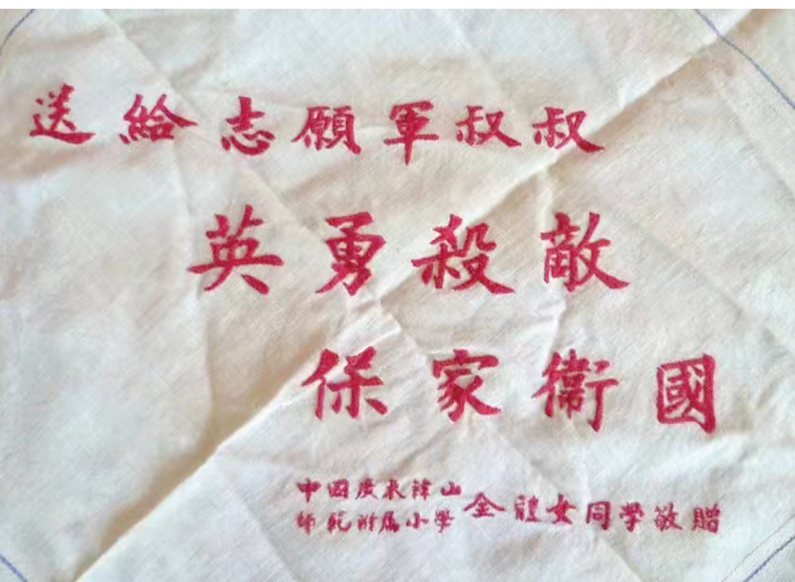 送給志願軍叔叔
英勇殺敵
保家衞國
中國廣東韓山
師範附屬小學
全體女同學敬贈